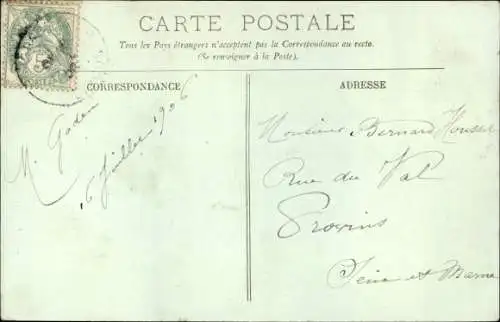 CARTE POSTALE
Tous les Pays étrangers n'acceptent pas la Correspondance au recto.
(Se renseigner à la Poste).
CORRESPONDANCE
ADRESSE
M. Gaden
16 Juillet 1906
Monsieur Bernard
Rue du Val
Provins
Seine et Marne